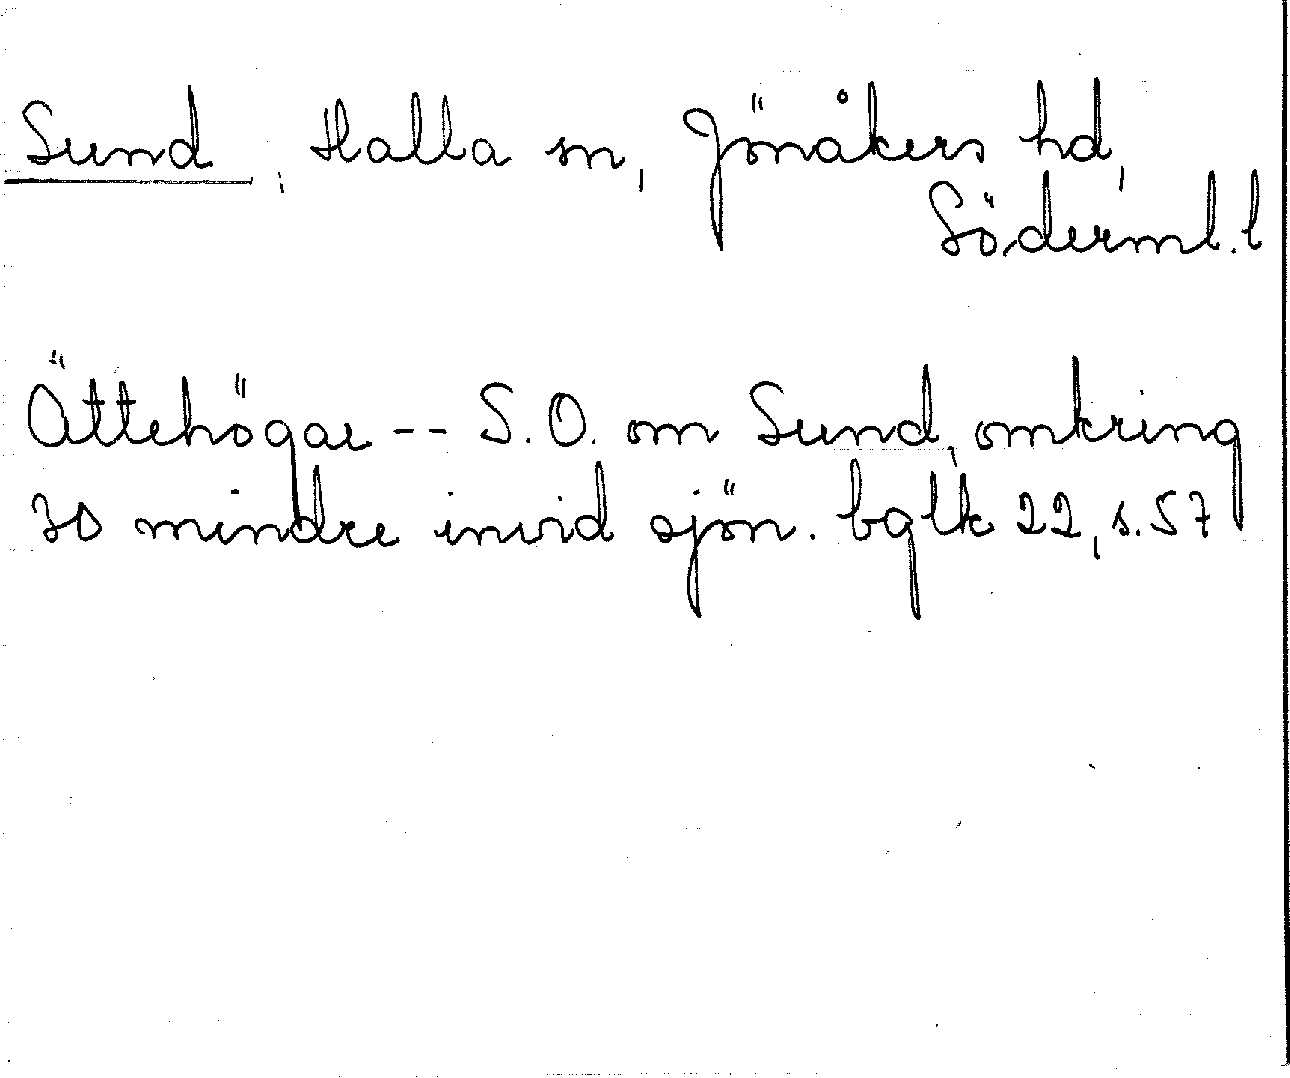 Sund, Halla sn, Jönåkers hd,
Söderml. l
Ättehögar -- S.O. om Sund, omkring
30 mindre invid sjön. bglk 22, s. 57